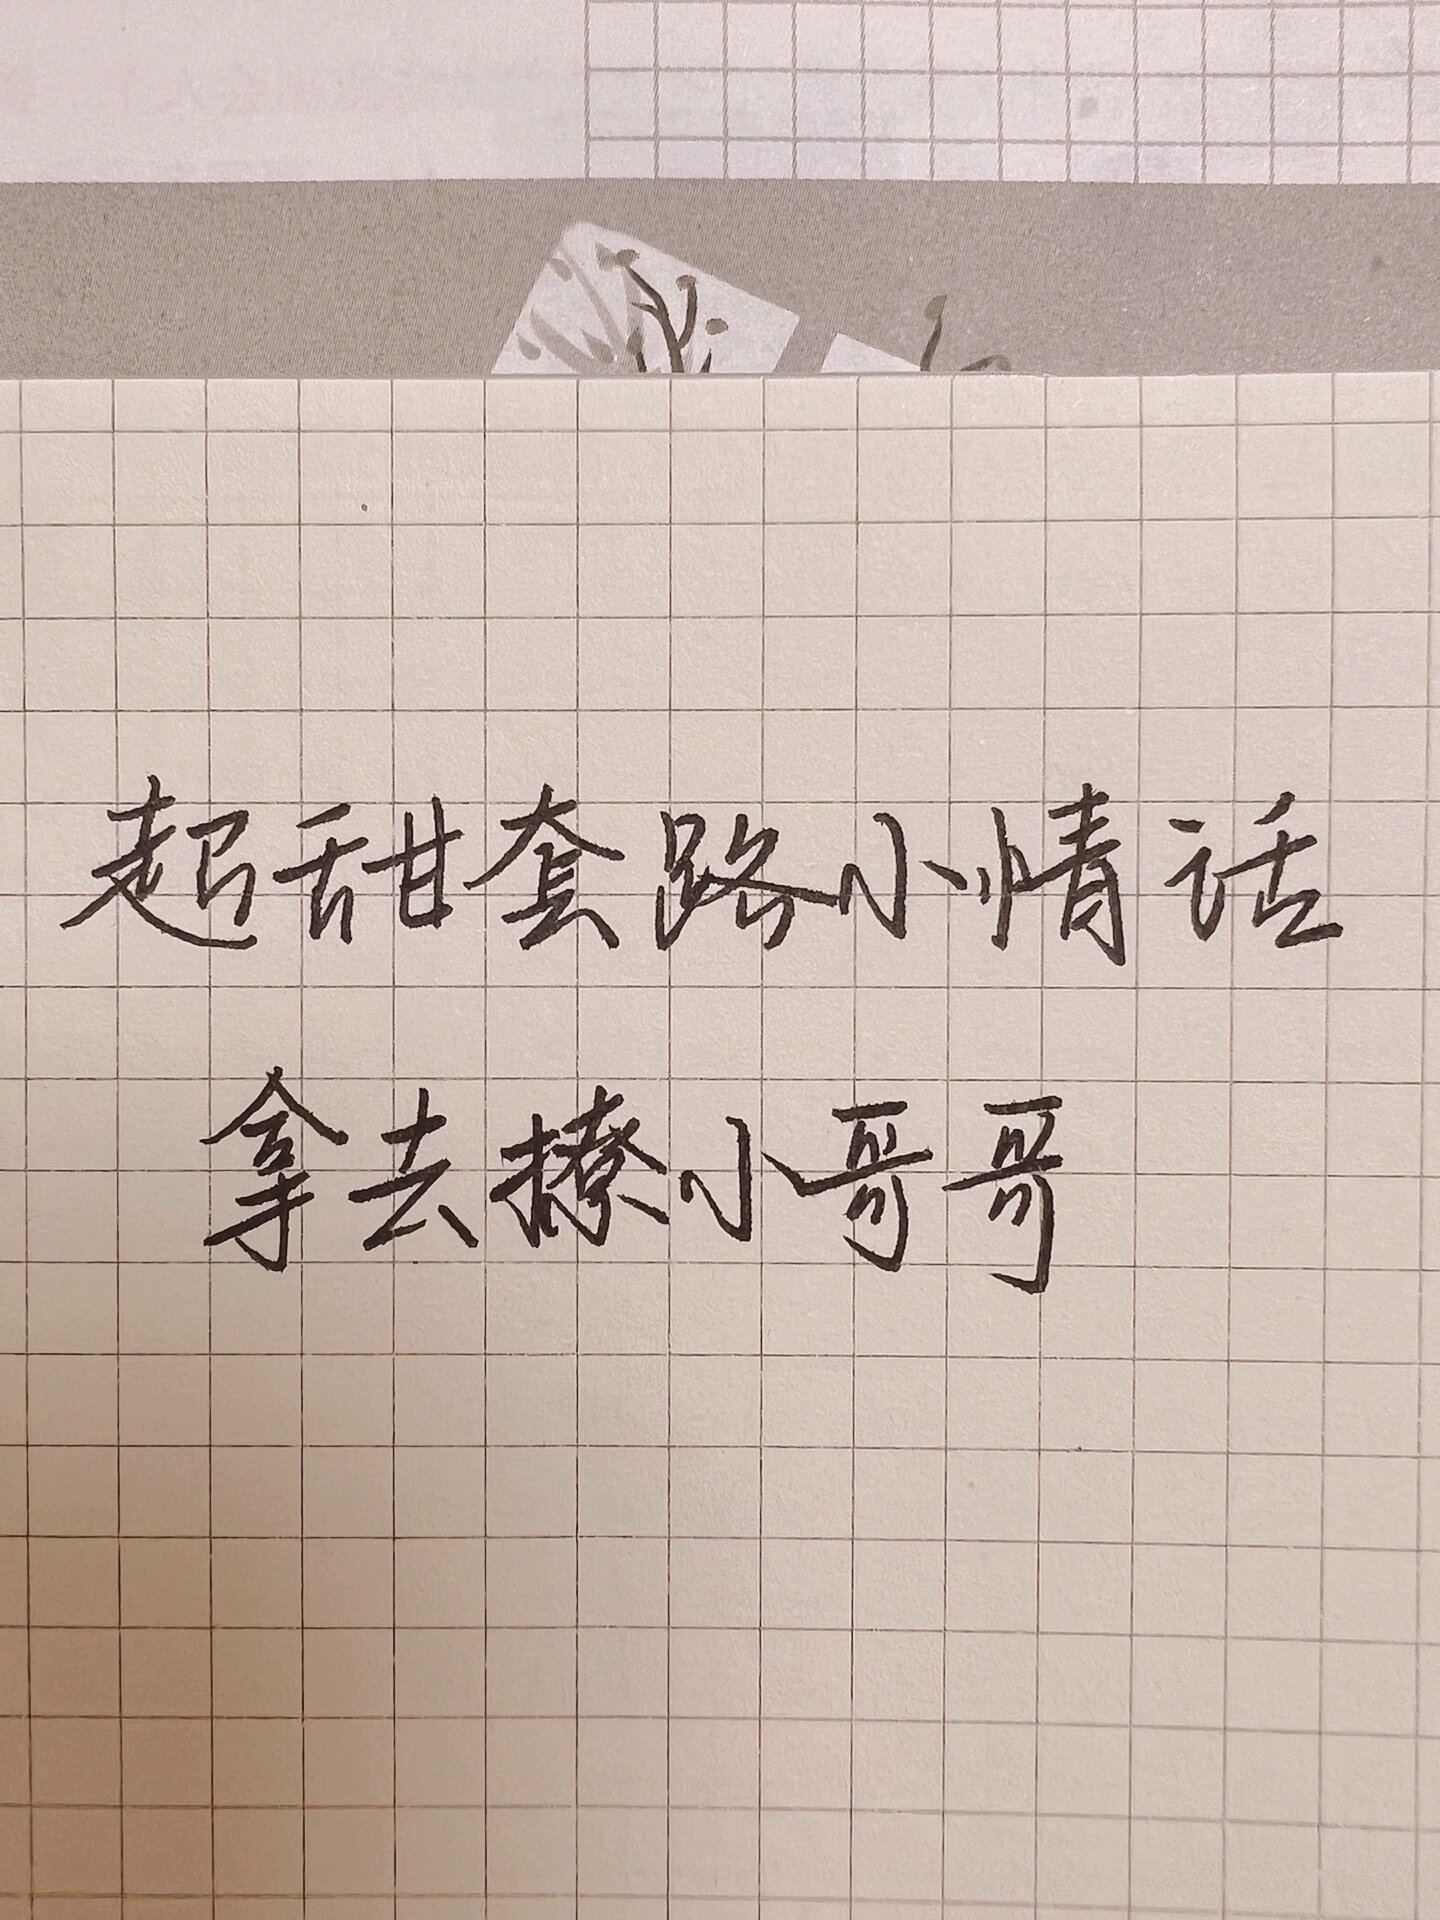 超甜套路小情话
拿去撩小哥哥